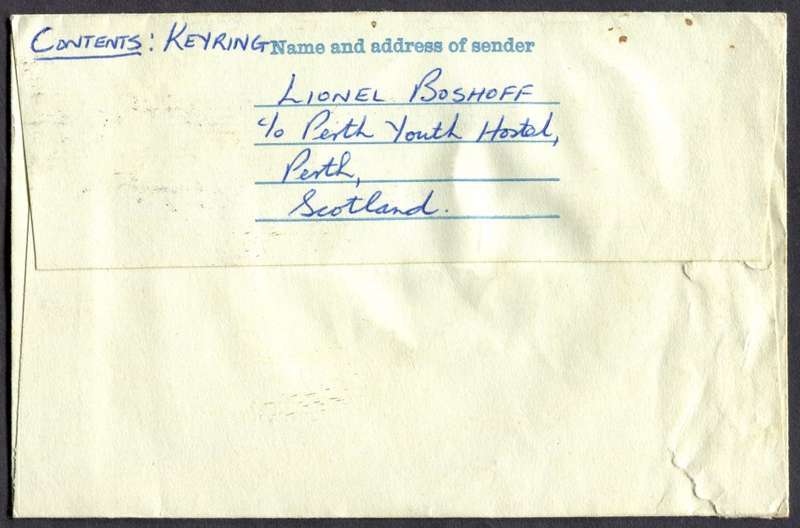 CONTENTS: KEYRING Name and address of sender
LIONEL BOSHOFF
c/o Perth Youth Hostel,
Perth,
Scotland.